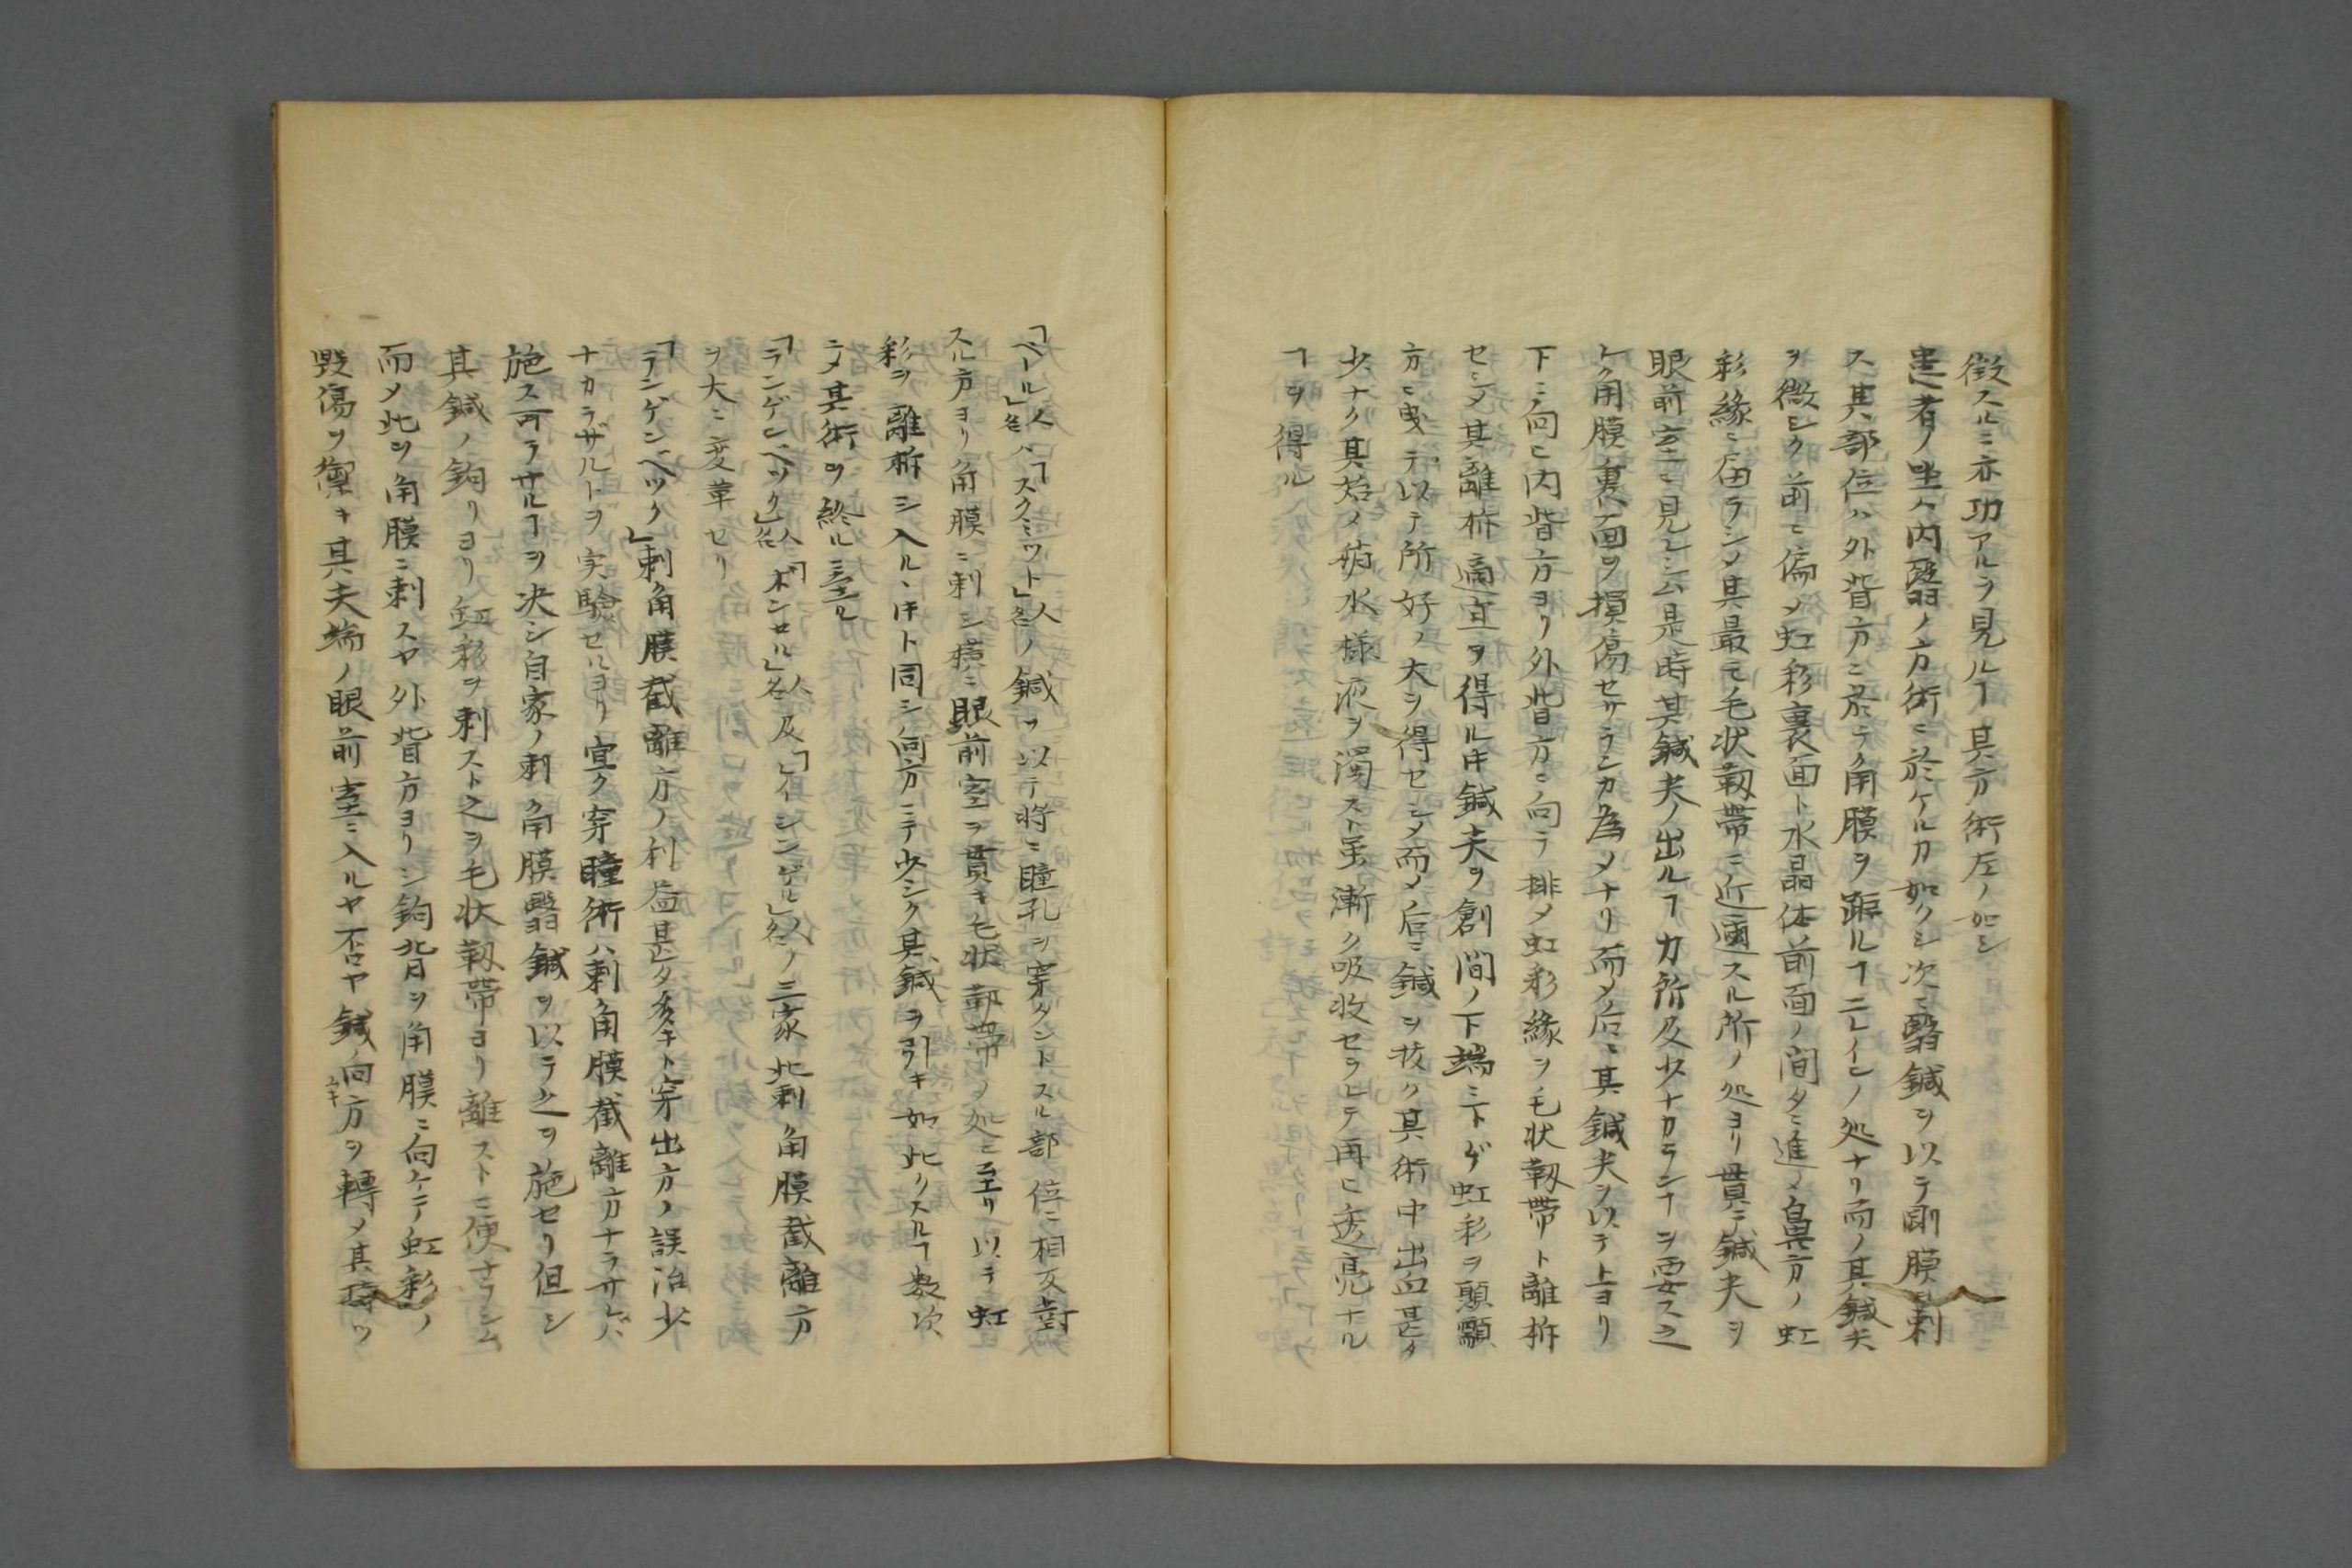 徴スルニ亦功アルヲ見ルヿ其方術左ノ如シ
患者ノ坐ハ内翳ノ方術ニ於ケルカ如クシ次ニ翳鍼ヲ以テ剛膜ヲ刺
ス其部位ハ外眥方ニ於テ角膜ヲ距ルヿ二レイシノ処ナリ而メ其鍼尖
ヲ微シク前ニ偏メ虹彩裏面ト水晶体前面ノ間タニ進メ鼻方ノ虹
彩縁ニ届ラシメ其最モ毛状靱帯ニ近適スル所ノ処ヨリ貫ニ鍼尖ヲ
眼前室ニ見レシム是時其鍼尖ノ出ルヿカ所及少ナカランヿヲ要ス之
ケ角膜裏面ヲ損傷セサランカ為メナリ而メ后ニ其鍼尖ヲ以テ上ヨリ
下ニ向ヒ内眥方ヨリ外眥方ニ向テ排メ虹彩縁ヲ毛状靱帯ト離柝
セシメ其離柝適宜ヲ得ル時鍼尖ヲ創間ノ下端ニトゲ虹彩ヲ顳顬
方ニ曳テ以テ所好ノ大ヲ得セシメ而メ后ニ鍼ヲ抜ク其術中出血甚タ
少ナク其始メ硝水様液ヲ濁スト虽漸ク吸收セラレテ再ヒ透亮ナル
ヿヲ得ル
「ベール」人名ハ「スクミット」人名ノ鍼ヲ以テ将ニ瞳孔ヲ穿タントスル部位ニ相反対
スル方ヨリ角膜ニ刺シ横ニ眼前室ヲ貫キ毛状靱帯ノ処ニ至リ以テ虹
彩ヲ離柝シ入ル丶時ト同シ向方ニテ少シク其鍼ヲ引キ如此クスルヿ数次
ニメ其術ヲ終ルニ至ル
「ランゲンベック」人名「ボンセル」人名及「レイシンゲル」人名ノ三家此刺角膜截離方
ヲ大ニ変革セリ
「ランゲンベック」刺角膜截離方ノ利益甚タ多キト穿出方ノ誤治少
ナカラザルトヲ実験セルヨリ宜ク穿瞳術ハ刺角膜截離方ナラサレバ
施ス可ラサルヿヲ决シ自家ノ刺角膜翳鍼ヲ以テ之ヲ施セリ但シ
其鍼ノ鈎リヨリ虹彩ヲ刺スト之ヲ毛状靱帯ヨリ離ストニ便ナラシム
而メ此ヲ角膜ニ刺スヤ外眥方ヨリシ鈎背ヲ角膜ニ向ケテ虹彩ノ
毀傷ヲ禦キ其尖端ノ眼前室ニ入ルヤ否ヤ鍼ノ向方ヲ轉メ其